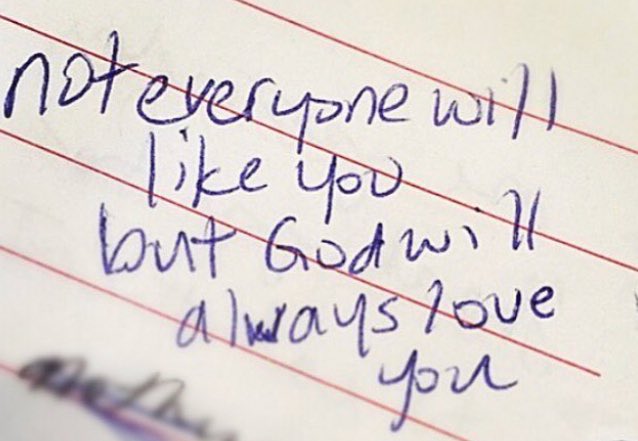 not everyone will
like you
but God will
always love
you